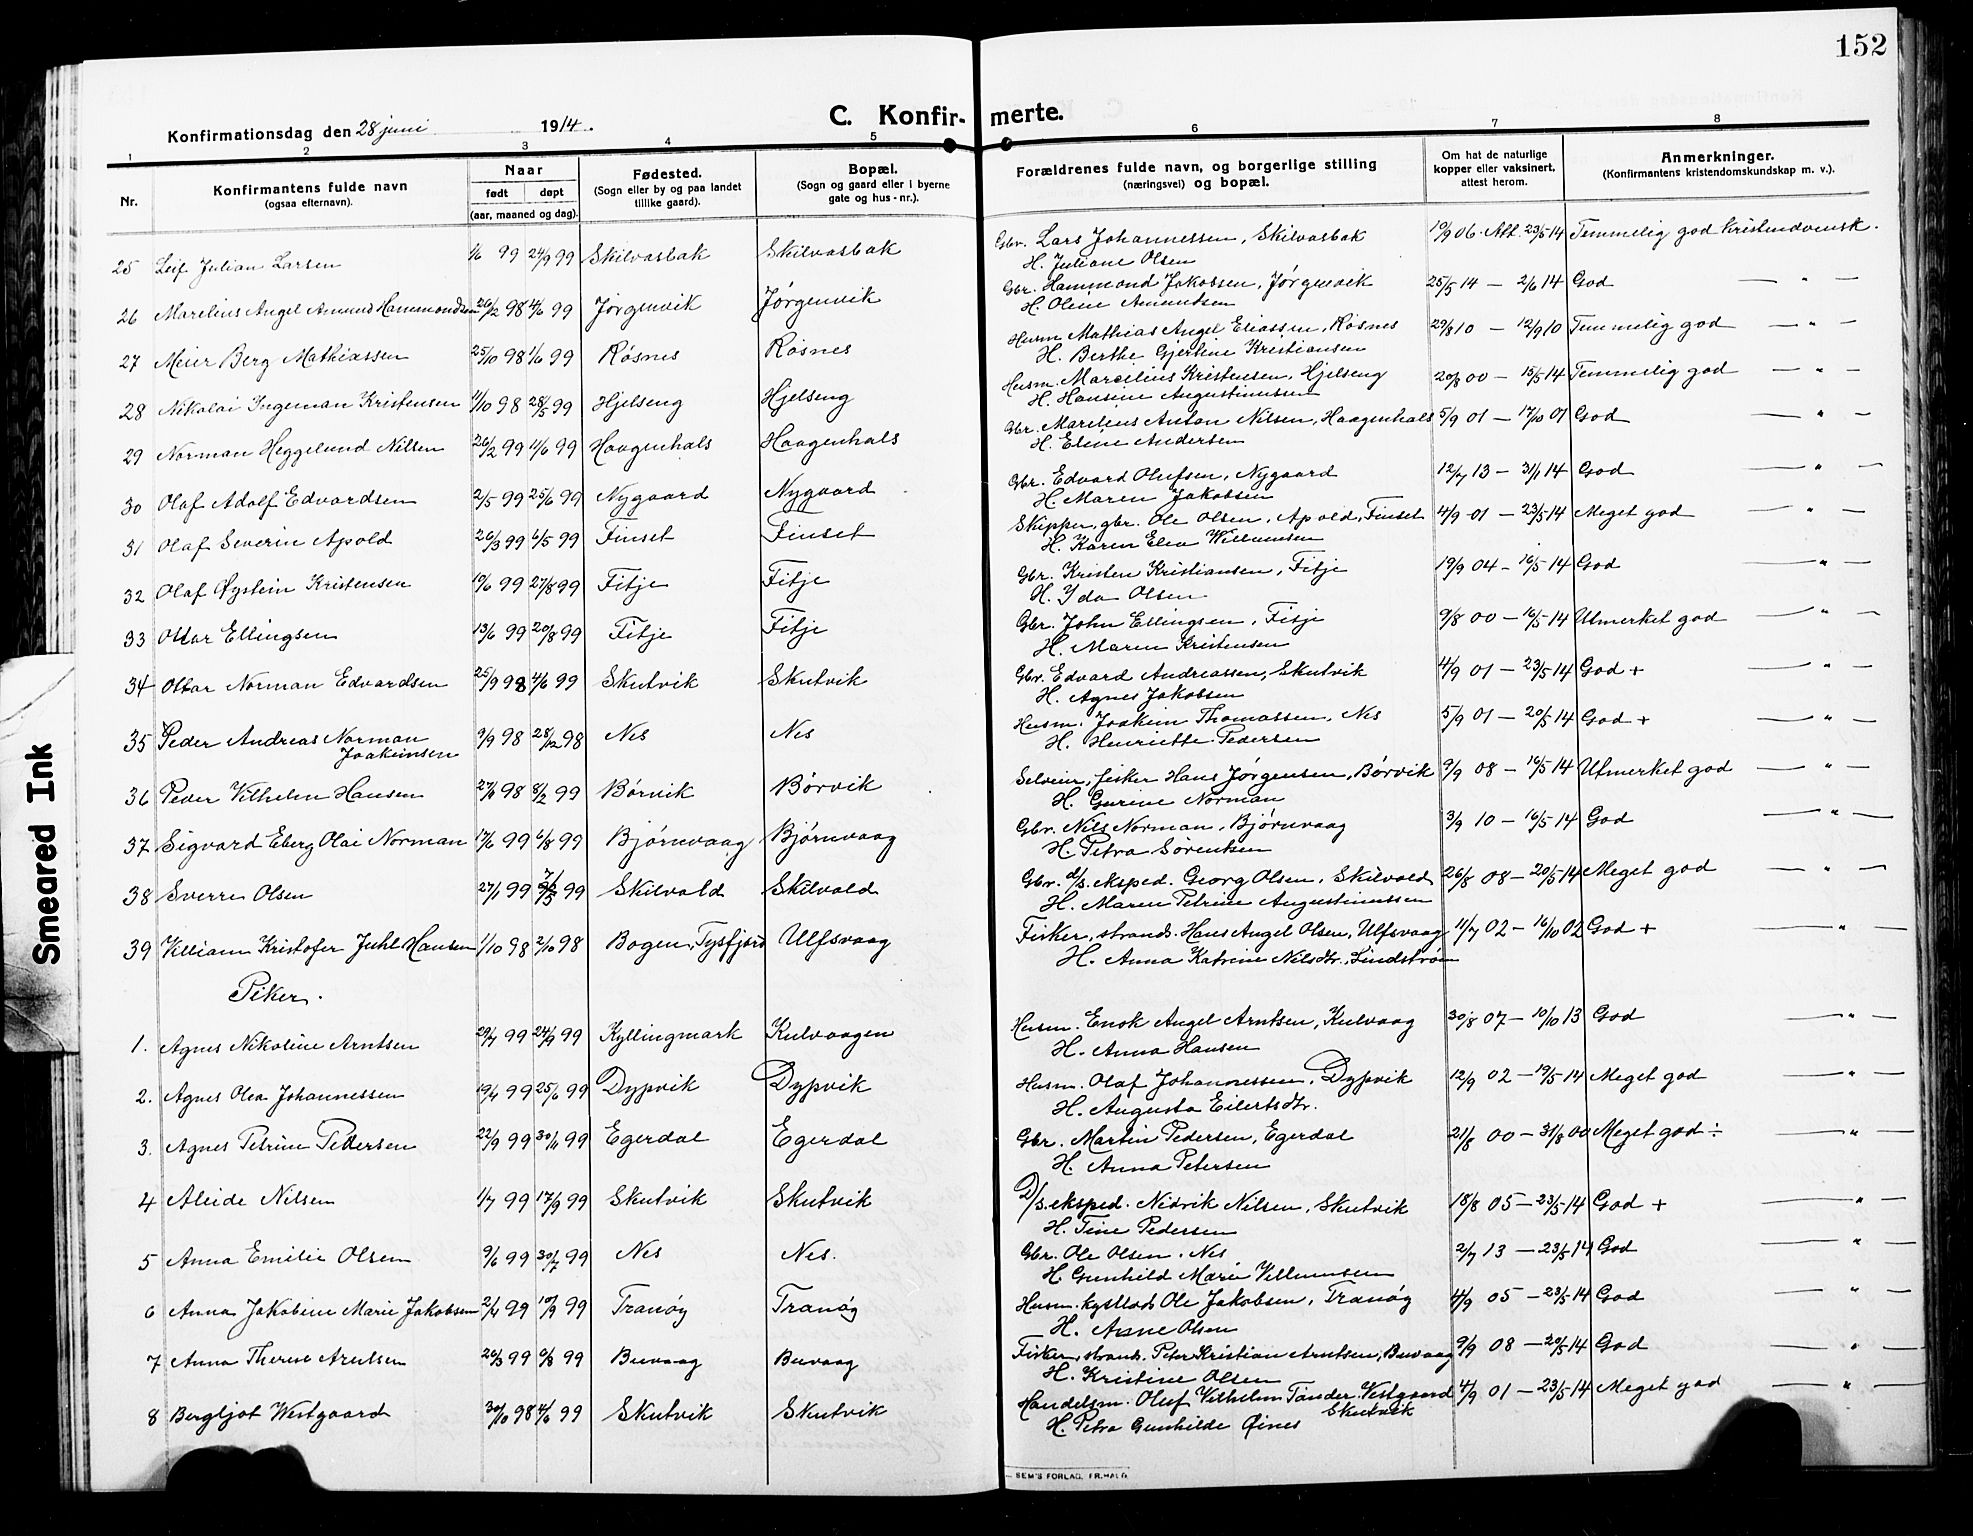 152
C. Konfirmerte.
Konfirmationsdag den 28 juni 1914.
1 2 3 4 5 6 7 8
Nr.
Konfirmantens fulde navn
(ogsaa efternavn).
Naar
født døpt
(aar, maaned og dag).
Fødested.
(Sogn eller by og paa landet
tillike gaard).
Bopæl.
(Sogn og gaard eller i byerne
gate og hus-nr.).
Forældrenes fulde navn, og borgerlige stilling
(næringsvei) og bopæl.
Om hat de naturlige
kopper eller vaksinert,
attest herom.
Anmerkninger.
(Konfirmantens kristendomskundskap m. v.).
25 Leif Julian Larsen 1/6 99 24/9 99 Skilvasbak Skilvasbak Gbr. Lars Johannessen, Skilvasbak 10/9 06. Att. 23/5 14 Temmelig god kristendomsk.
H. Juliane Olsen
26 Marelius Angel Amund Hammondsen 26/2 98 4/6 99 Jørgenvik Jørgenvik Gbr. Hammond Jakobsen, Jørgenvik 25/5 14 — 2/6 14 God — " —
H. Oline Amundsen
27 Meier Berg Mathiassen 25/10 98 1/6 99 Røsnes Røsnes Husm Mathias Angel Eliassen, Røsnes 29/8 10 — 12/9 10 Temmelig god — " —
H. Berthe Gjertine Kristiansen
28 Nikolai Ingeman Kristensen 1/10 98 28/5 99 Hjelseng Hjelseng Husm. Marcelius Kristensen, Hjelseng 20/8 00 — 15/5 14 Temmelig god — " —
H. Hansine Augustinussen
29 Norman Heggelund Nilsen 26/2 99 11/6 99 Haagenhals Haagenhals Gbr. Marelius Anton Nilsen, Haagenhals 5/9 01 — 17/10 01 God — " —
H. Eline Andersen
30 Olaf Adolf Edvardsen 2/5 99 25/6 99 Nygaard Nygaard Gbr. Edvard Olufsen, Nygaard 12/7 13 — 31/1 14 God — " —
H. Maren Jakobsen
31 Olaf Severin Apold 26/3 99 6/5 99 Finset Finset Skipper, gbr. Ole Olsen, Apold, Finset 4/9 01 — 23/5 14 Meget god — " —
H. Karen Elea Willumsen
32 Olaf Øystein Kristensen 19/6 99 27/8 99 Fitje Fitje Gbr. Kristen Kristiansen, Fitje 19/9 04 — 16/5 14 God — " —
H. Ida Olsen
33 Ottar Ellingsen 13/6 99 20/8 99 Fitje Fitje Gbr. John Ellingsen, Fitje 9/8 00 — 16/5 14 Utmerket god — " —
H. Maren Kristensen
34 Ottar Norman Edvardsen 25/9 98 4/6 99 Skutvik Skutvik Gbr. Edvard Andreassen, Skutvik 4/9 01 — 23/5 14 God + — " —
H. Agnes Jakobsen
35 Peder Andreas Norman 9/9 98 28/12 98 Nes Nes Husm. Joakim Thomassen, Nes 5/9 01 — 20/5 14 God + — " —
Joakimsen H. Henriette Pedersen
36 Peder Vilhelm Hansen 98 8/2 99 Børvik Børvik Selveier, fisker Hans Jørgensen, Børvik 9/9 08 — 16/5 14 Utmerket god — " —
H. Gurine Norman
37 Sigvard Eberg Olai Norman 17/6 99 6/8 99 Bjørnvaag Bjørnvaag Gbr. Nils Norman, Bjørnvaag 3/9 10 — 16/5 14 God — " —
H. Petra Sørensen
38 Sverre Olsen 27/1 99 99 Skilvold Skilvold Gbr. d/s. eksped. Georg Olsen, Skilvold 26/8 08 — 20/5 14 Meget god — " —
H. Maren Petrine Augustinussen
39 Villiam Kristofer Juhl Hansen 1/10 98 2/10 98 Bogen, Tysfjord Ulfsvaag Fisker, strands. Hans Angel Olsen, Ulfsvaag 11/7 02 — 16/10 02 God + — " —
H. Anna Katrine Nilsdtr. Lindstrøm
Piker.
1. Agnes Nikoline Arntsen 29/7 99 24/9 99 Kyllingmark Kulvaagen Husm. Enok Angel Arntsen, Kulvaag 30/8 07 — 10/10 13 God — " —
H. Anna Hansen
2. Agnes Olea Johannessen 19/4 99 25/6 99 Dypvik Dypvik Husm. Olaf Johannessen, Dypvik 12/9 02 — 19/5 14 Meget god — " —
H. Augusta Eilertsdtr.
3. Agnes Petrine Pedersen 22/9 99 99 Egerdal Egerdal Gbr. Martin Pedersen, Egerdal 21/8 00 — 31/8 00 Meget god ÷ — " —
H. Anna Petersen
4 Aleide Nilsen 1/7 99 17/9 99 Skutvik Skutvik D/s. eksped. Nidrik Nilsen, Skutvik 18/8 05 — 23/5 14 God + — " —
H. Tine Pedersen
5 Anna Emilie Olsen 9/6 99 30/7 99 Nes Nes. Gbr. Ole Olsen, Nes 2/7 13 — 23/5 14 God — " —
H. Gunhild Marie Villumsen
6 Anna Jakobine Marie Jakobsen 2/4 99 10/9 99 Tranøy Tranøy Husm. kystlods Ole Jakobsen, Tranøy 4/9 05 — 23/5 14 God — " —
H. Anne Olsen
7 Anna Therese Arntsen 20/3 99 6/8 99 Buvaag Buvaag Fisker, strands. Peter Kristian Arntsen, Buvaag 9/9 08 — 20/5 14 God — " —
H. Kristine Olsen
8 Bergljot Westgaard 30/10 98 4/6 99 Skutvik Skutvik Handelsm. Oluf Vilhelm Tønder Westgaard 4/9 01 — 23/5 14 Meget god — " —
Skutvik
H. Petra Gunhilde Øines
SEM'S FORLAG, FR.HALD.
Smeared Ink